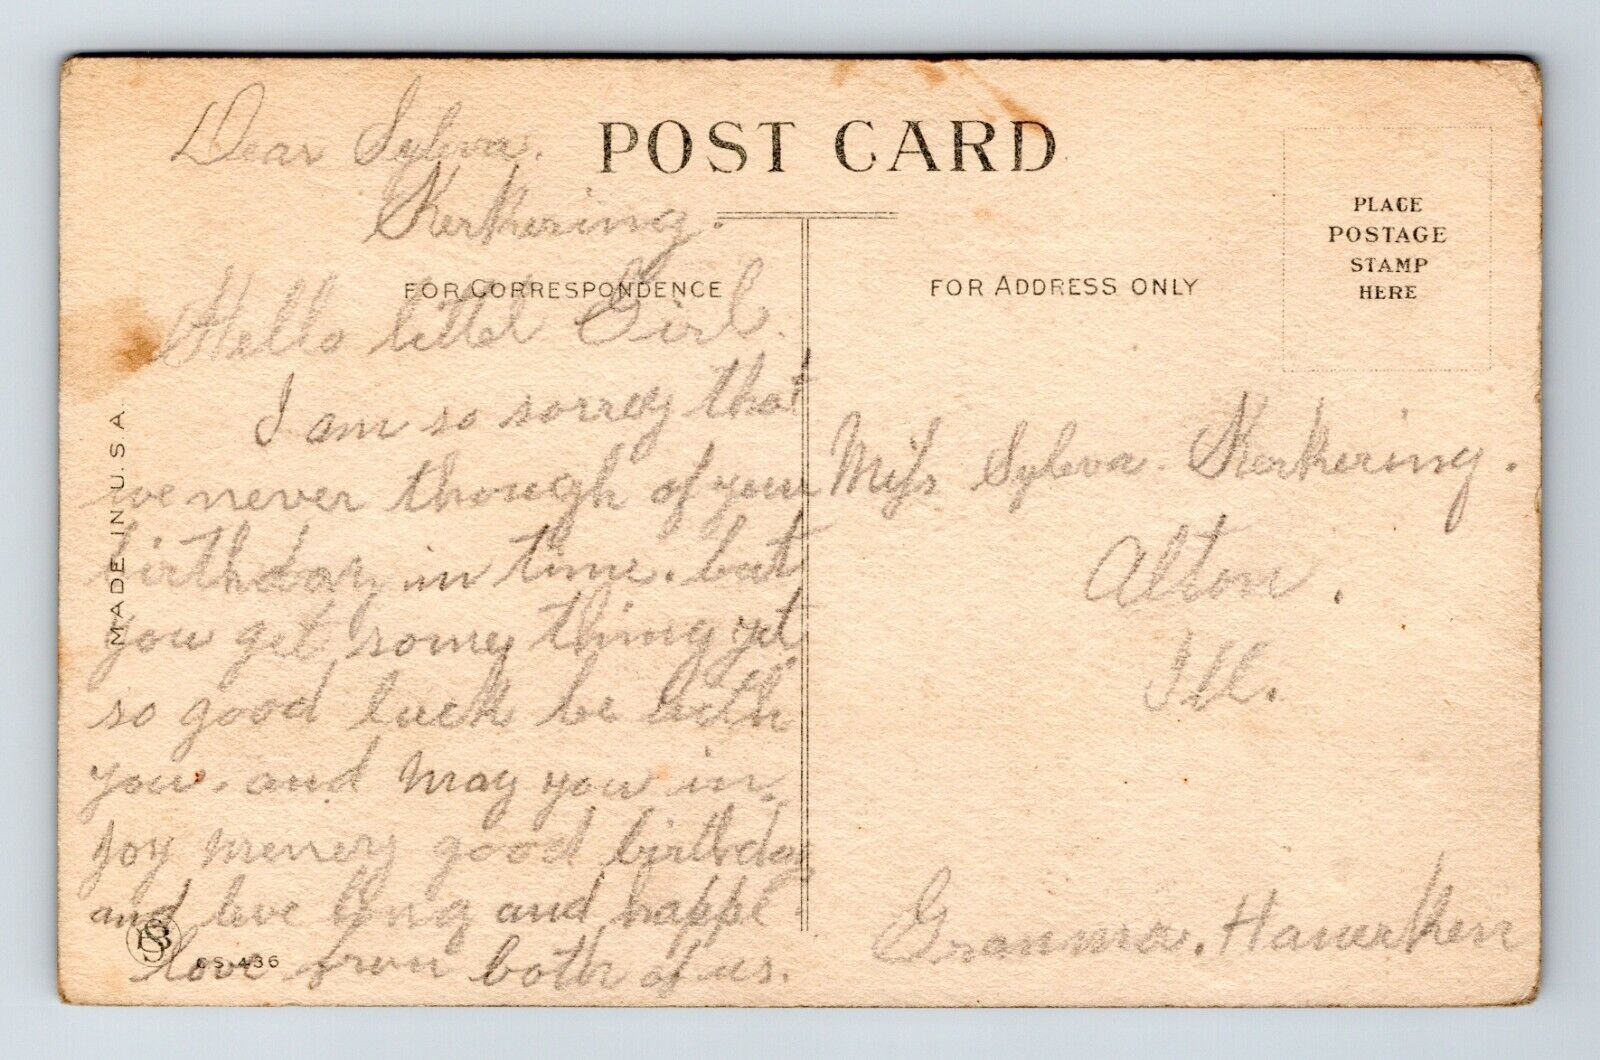 Dear Sylvia.
Kerkering.
POST CARD
PLACE
POSTAGE
STAMP
HERE
FOR CORRESPONDENCE
FOR ADDRESS ONLY
Hello littel Girl.
I am so sorrey that
we never though of your
birthday in time. but
you get some thing yet.
so good luck be with
you. and may you in
joy meney good birthday
and leve long and happe.
love from both of us.
Miss Sylvia Kerkering.
Alton.
Ill.
Granma.
MADE IN U.S.A.
CS.436